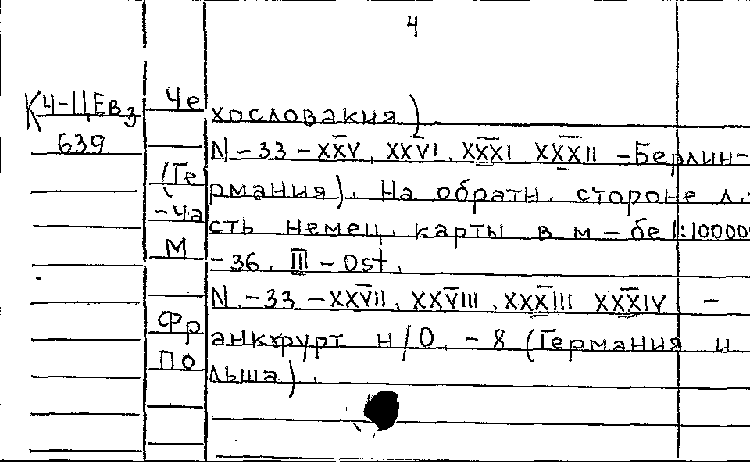 4
КЧ-ЦЕвз Чехословакия)
639 N-33-XXV, XXVI, XXXI XXXII -Берлин-
(Германия). На обратн. стороне л.
-часть немец. карты в м-бе 1:100000
М-36. III - Ost.
N.-33-XXVII, XXVIII, XXXIII XXXIV -
Франкфурт н/О. - 8 (Германия и
Польша).